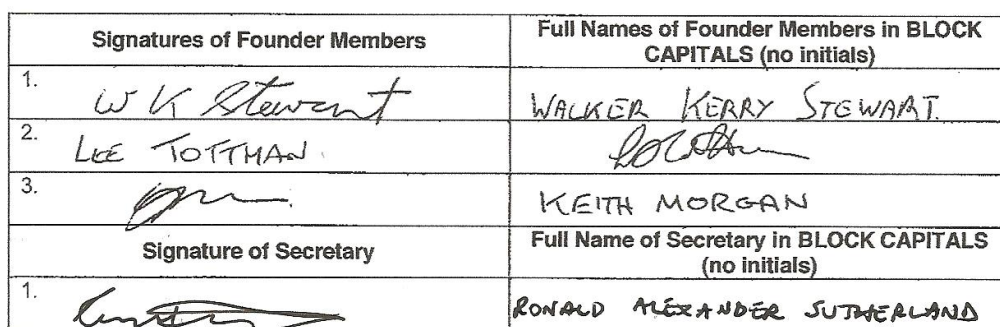 Signatures of Founder Members
Full Names of Founder Members in BLOCK
CAPITALS (no initials)
1.
W K Stewart
WALKER KERRY STEWART.
2.
LEE TOTTMAN.
3.
KEITH MORGAN
Signature of Secretary
Full Name of Secretary in BLOCK CAPITALS
(no initials)
1.
RONALD ALEXANDER SUTHERLAND